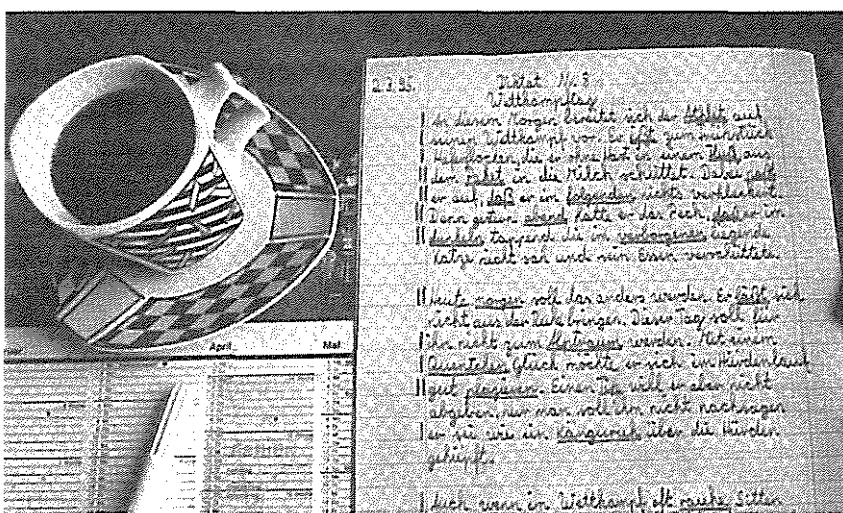 Diktat Nr.
Wettkampftag
An diesem Morgen bereitet sich der Athlet auf
seinen Wettkampf vor. Er ißt zum Frühstück
Haferflocken, die er ohne Hast in einem Fluß aus
dem Paket in die Milch schüttet. Dabei paßt
er auf, daß er im folgenden nichts verkleckert.
Denn gestern abend hatte er das Pech, daß er im
dunkeln tappend die im verborgenen liegende
Katze nicht sah und sein Essen verschüttete.
Heute morgen soll das anders werden. Er läßt sich
nicht aus der Ruhe bringen. Dieser Tag soll für
ihn nicht zum Alptraum werden. Mit einem
Quentchen Glück möchte er sich im Hürdenlauf
gut plazieren. Einen Tip will er aber nicht
abgeben, nur man soll ihm nicht nachsagen
er sei wie ein Känguruh über die Hürden
gehüpft.
Auch wenn im Wettkampf oft rauhe Sitten
April
Mai